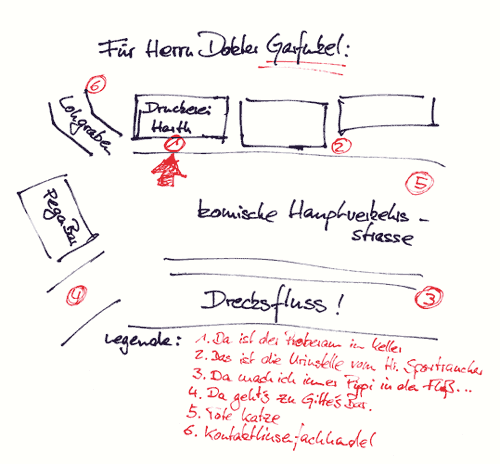 Für Herrn Dokter Garfunkel:
6
Lohgraben
Druckerei
Harth
1
2
5
Pega Bar
komische Hauptverkehrs-
strasse
4
3
Drecksfluss!
Legende:
1. Da ist der Proberaum im Keller
2. Das ist die Urinstelle vom Hr. Sportraucher
3. Da mach ich immer Pippi in den Fluß...
4. Da geht's zu Gitte's Bar.
5. Tote Katze
6. Kontaktlinsenfachhandel